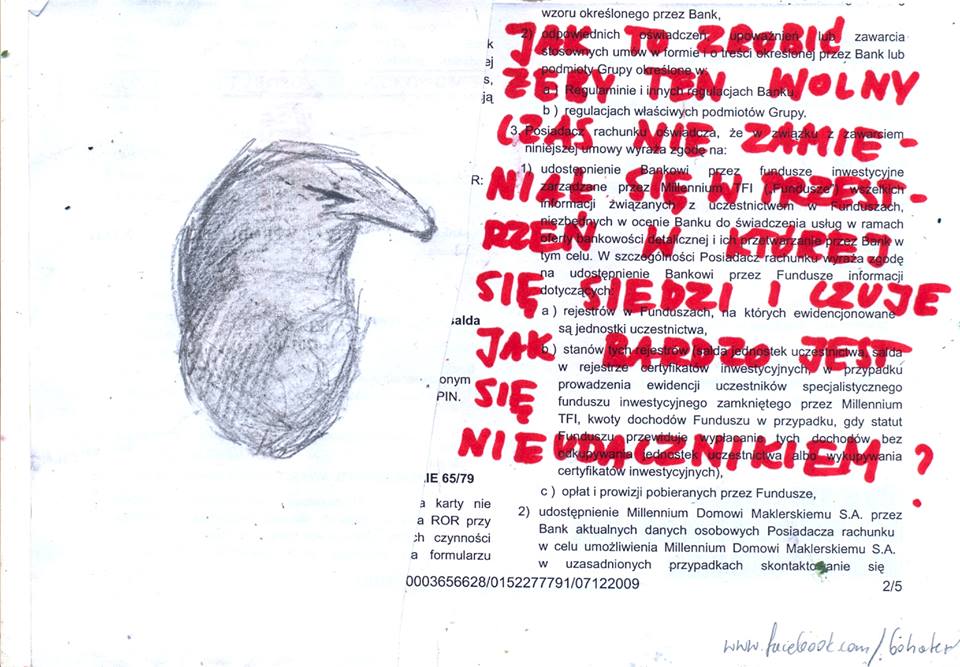 JAK TO ZROBIĆ
ŻEBY TEN WOLNY
CZAS NIE ZAMIE-
NIAŁ SIĘ W PRZEST-
RZEŃ W KTÓREJ
SIĘ SIEDZI I CZUJE
JAK BARDZO JEST
SIĘ
NIEUDACZNIKIEM ?
k
ej
s,
ją
R:
salda
onym
PIN.
IE 65/79
a karty nie
a ROR przy
ch czynności
a formularzu
wzoru określonego przez Bank,
2) odpowiednich oświadczeń, upoważnień lub zawarcia
stosownych umów w formie i o treści określonej przez Bank lub
podmioty Grupy określone w:
a ) Regulaminie i innych regulacjach Banku,
b ) regulacjach właściwych podmiotów Grupy.
3. Posiadacz rachunku oświadcza, że w związku z zawarciem
niniejszej umowy wyraża zgodę na:
1) udostępnienie Bankowi przez fundusze inwestycyjne
zarządzane przez Millennium TFI („Fundusze") wszelkich
informacji związanych z uczestnictwem w Funduszach,
niezbędnych w ocenie Banku do świadczenia usług w ramach
oferty bankowości detalicznej i ich przetwarzanie przez Bank w
tym celu. W szczególności Posiadacz rachunku wyraża zgodę
na udostępnienie Bankowi przez Fundusze informacji
dotyczących:
a ) rejestrów w Funduszach, na których ewidencjonowane
są jednostki uczestnictwa,
b ) stanów tych rejestrów (salda jednostek uczestnictwa, salda
w rejestrze certyfikatów inwestycyjnych, w przypadku
prowadzenia ewidencji uczestników specjalistycznego
funduszu inwestycyjnego zamkniętego przez Millennium
TFI, kwoty dochodów Funduszu w przypadku, gdy statut
Funduszu przewiduje wypłacanie tych dochodów bez
odkupywania jednostek uczestnictwa albo wykupywania
certyfikatów inwestycyjnych),
c ) opłat i prowizji pobieranych przez Fundusze,
2) udostępnienie Millennium Domowi Maklerskiemu S.A. przez
Bank aktualnych danych osobowych Posiadacza rachunku
w celu umożliwienia Millennium Domowi Maklerskiemu S.A.
w uzasadnionych przypadkach skontaktowanie się
0003656628/0152277791/07122009
2/5
www.facebook.com/